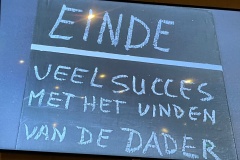 EINDE
VEEL SUCCES
MET HET VINDEN
VAN DE DADER